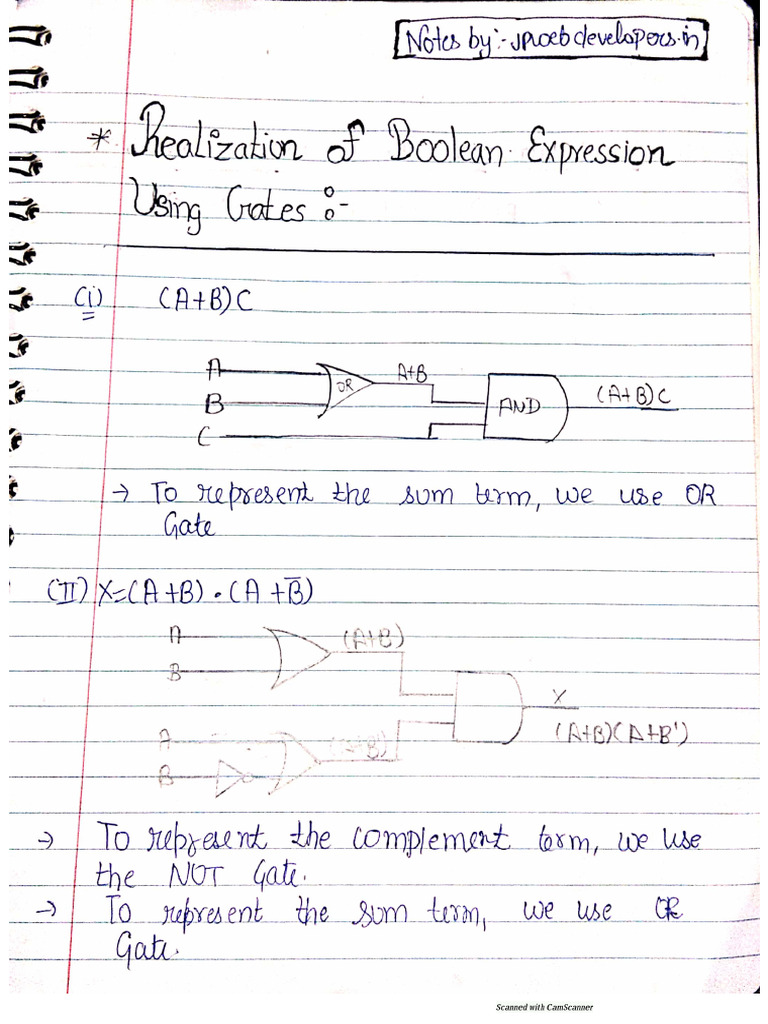 Notes by:- jprocbdevelopers.in
* Realization of Boolean Expression
Using Gates :-
(i) (A+B)C
A
B
C
OR
A+B
AND
(A+B)C
→ To represent the sum term, we use OR
Gate
(II) X=(A+B)·(A+B̅)
A
B
(A+B)
A
B
(A+B')
X
(A+B)(A+B')
→ To represent the complement term, we use
the NOT Gate.
→ To represent the sum term, we use OR
Gate.
Scanned with CamScanner